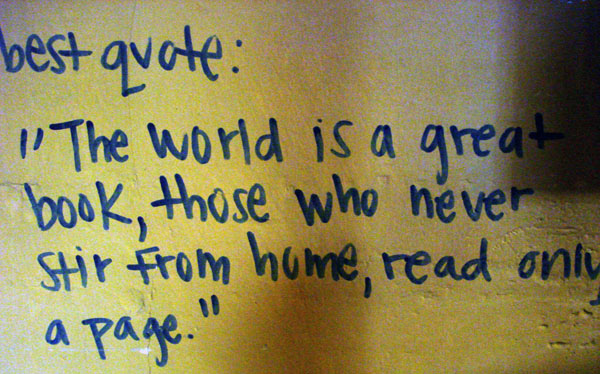 best quote:
"The world is a great
book, those who never
stir from home, read only
a page."